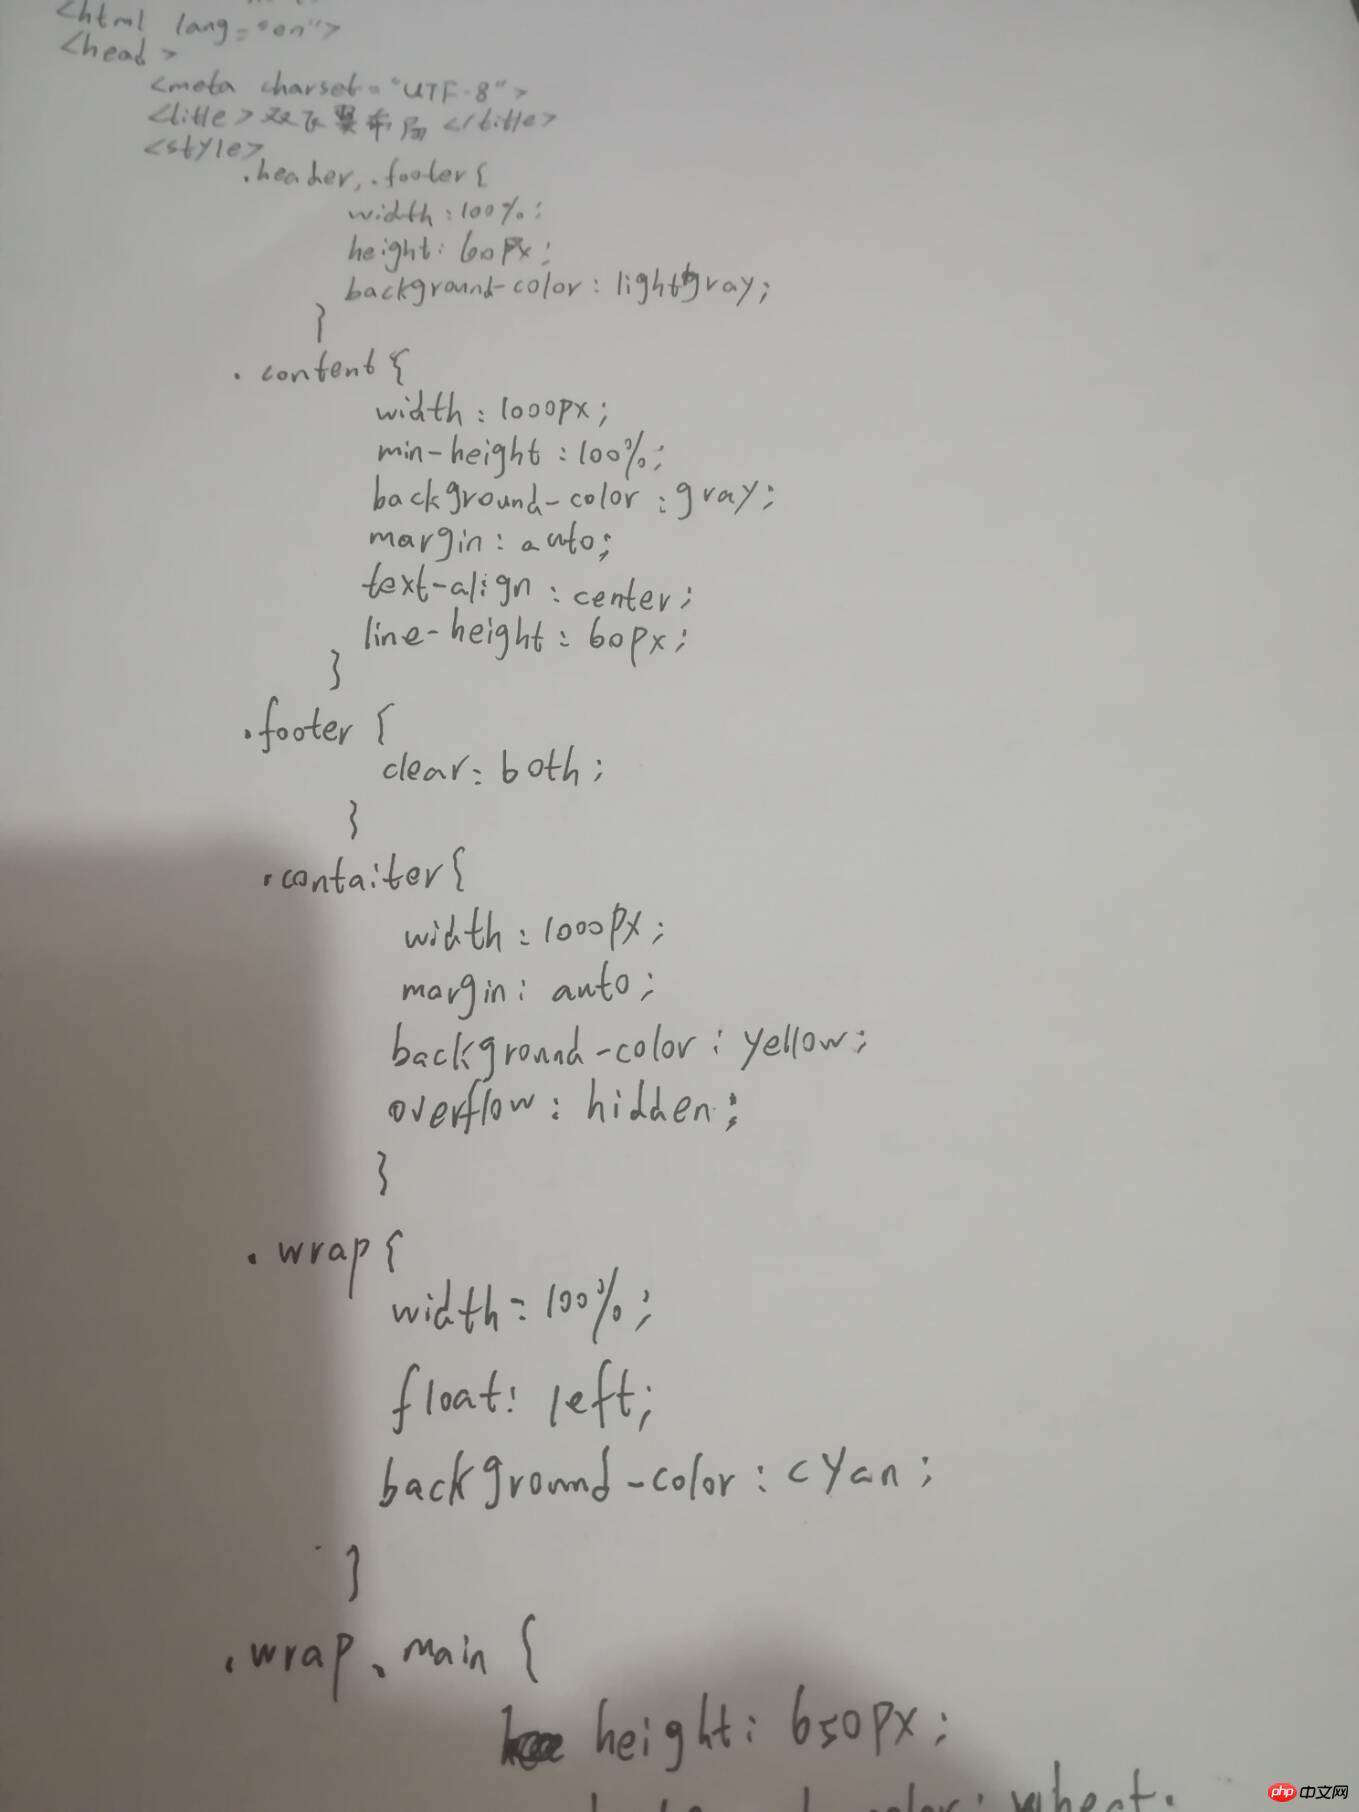 <html lang="en">
<head>
<meta charset="UTF-8">
<title>双飞翼布局</title>
<style>
.header,.footer{
width:100%;
height:60px;
background-color:lightgray;
}
.content{
width:1000px;
min-height:100%;
background-color:gray;
margin:auto;
text-align:center;
line-height:60px;
}
.footer{
clear:both;
}
.contaiter{
width:1000px;
margin:auto;
background-color:yellow;
overflow:hidden;
}
.wrap{
width:100%;
float:left;
background-color:cyan;
}
.wrap .main{
height:650px;
color:wheat;
php 中文网